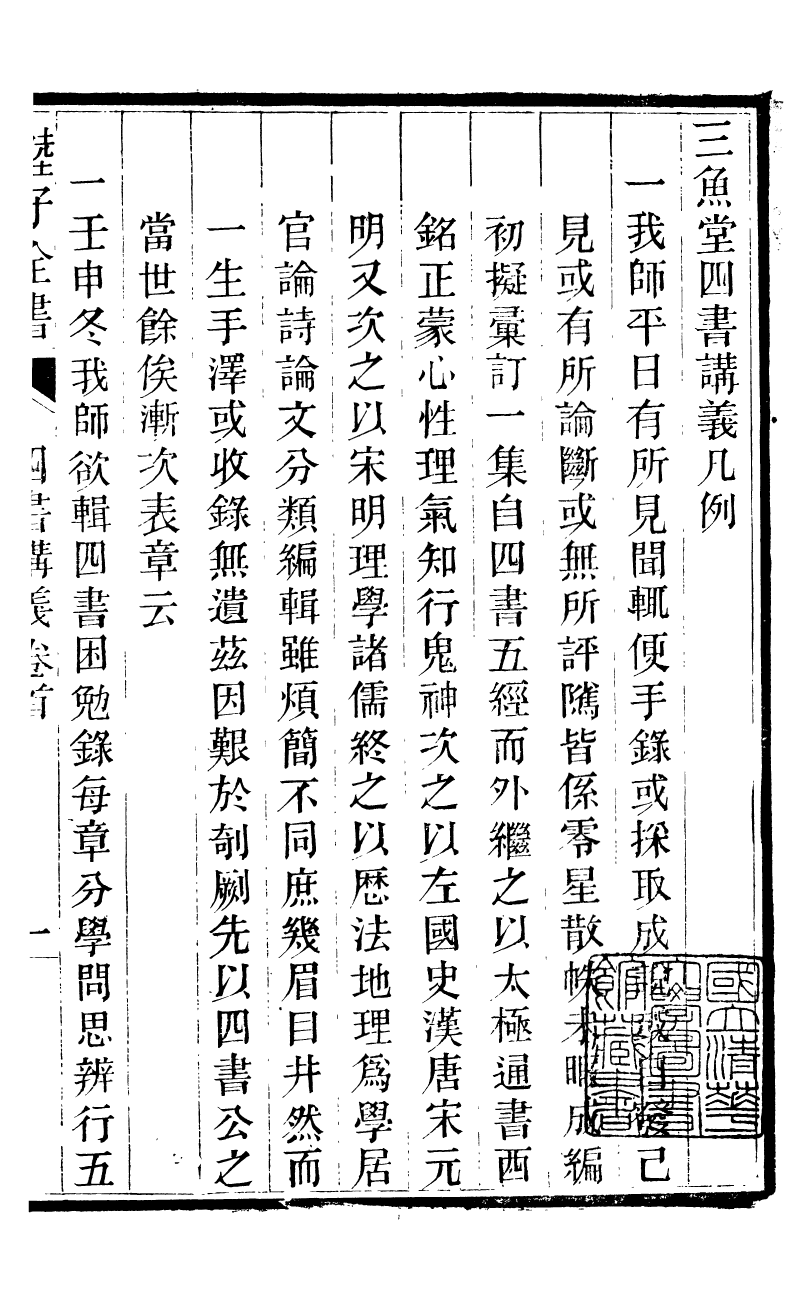 三魚堂四書講義凡例
一我師平日有所見聞輒便手錄或採取成說或自發己
見或有所論斷或無所評隲皆係零星散帙未暇成編
初擬彙訂一集自四書五經而外繼之以太極通書西
銘正蒙心性理氣知行鬼神次之以左國史漢唐宋元
明又次之以宋明理學諸儒終之以歴法地理爲學居
官論詩論文分類編輯雖煩簡不同庶幾眉目井然而
一生手澤或收錄無遺茲因艱於剞劂先以四書公之
當世餘俟漸次表章云
一壬申冬我師欲輯四書困勉錄每章分學問思辨行五
陸子全書
四書講義卷首
一
國立清華
大學圖書
館藏書